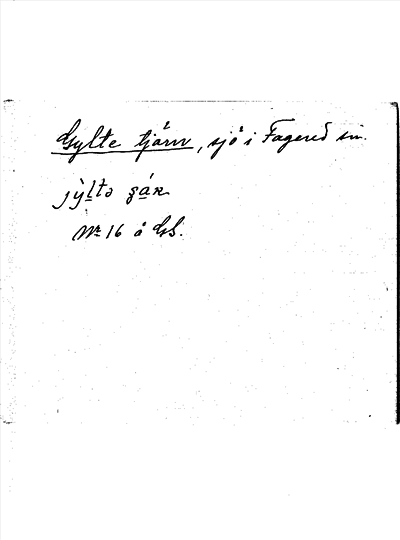 Gylte tjärn, sjö i Fagered sn.
jỳltə ʂár
Nr 16 å GS.